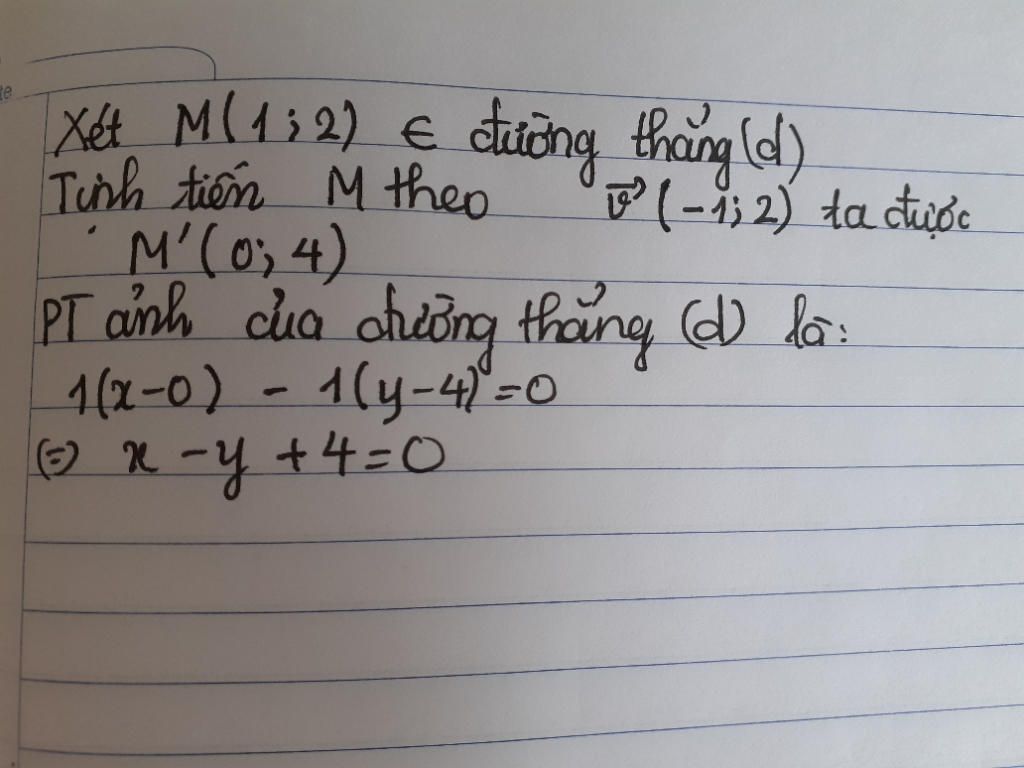 Xét M(1;2) ∈ đường thẳng (d)
Tịnh tiến M theo v⃗ (-1;2) ta được
M'(0;4)
PT ảnh của đường thẳng (d) là:
1(x-0) - 1(y-4)=0
(=) x -y +4=0